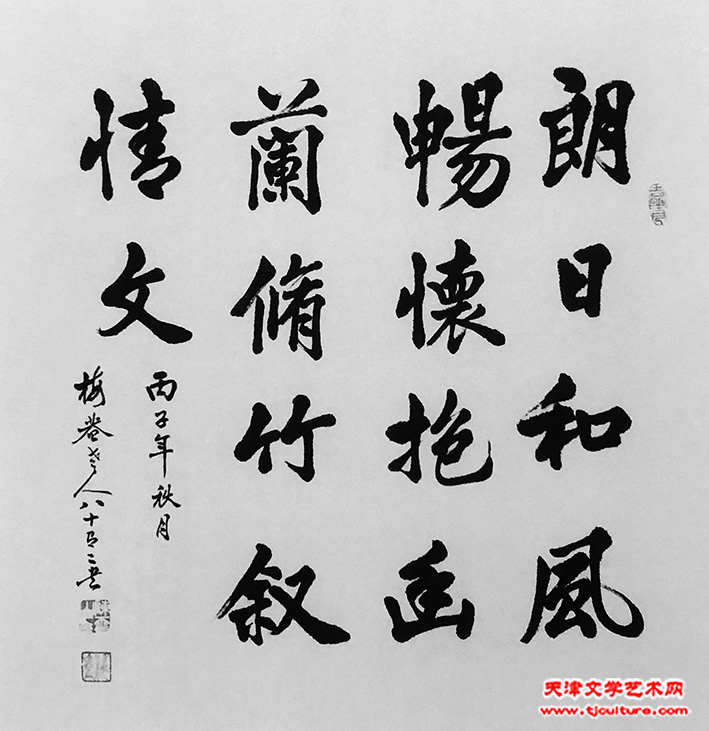 朗日和風
暢懷抱幽
蘭脩竹叙
情文
丙子年秋月
梅盦老人八十有二書
天津文学艺术网
www.tjculture.com